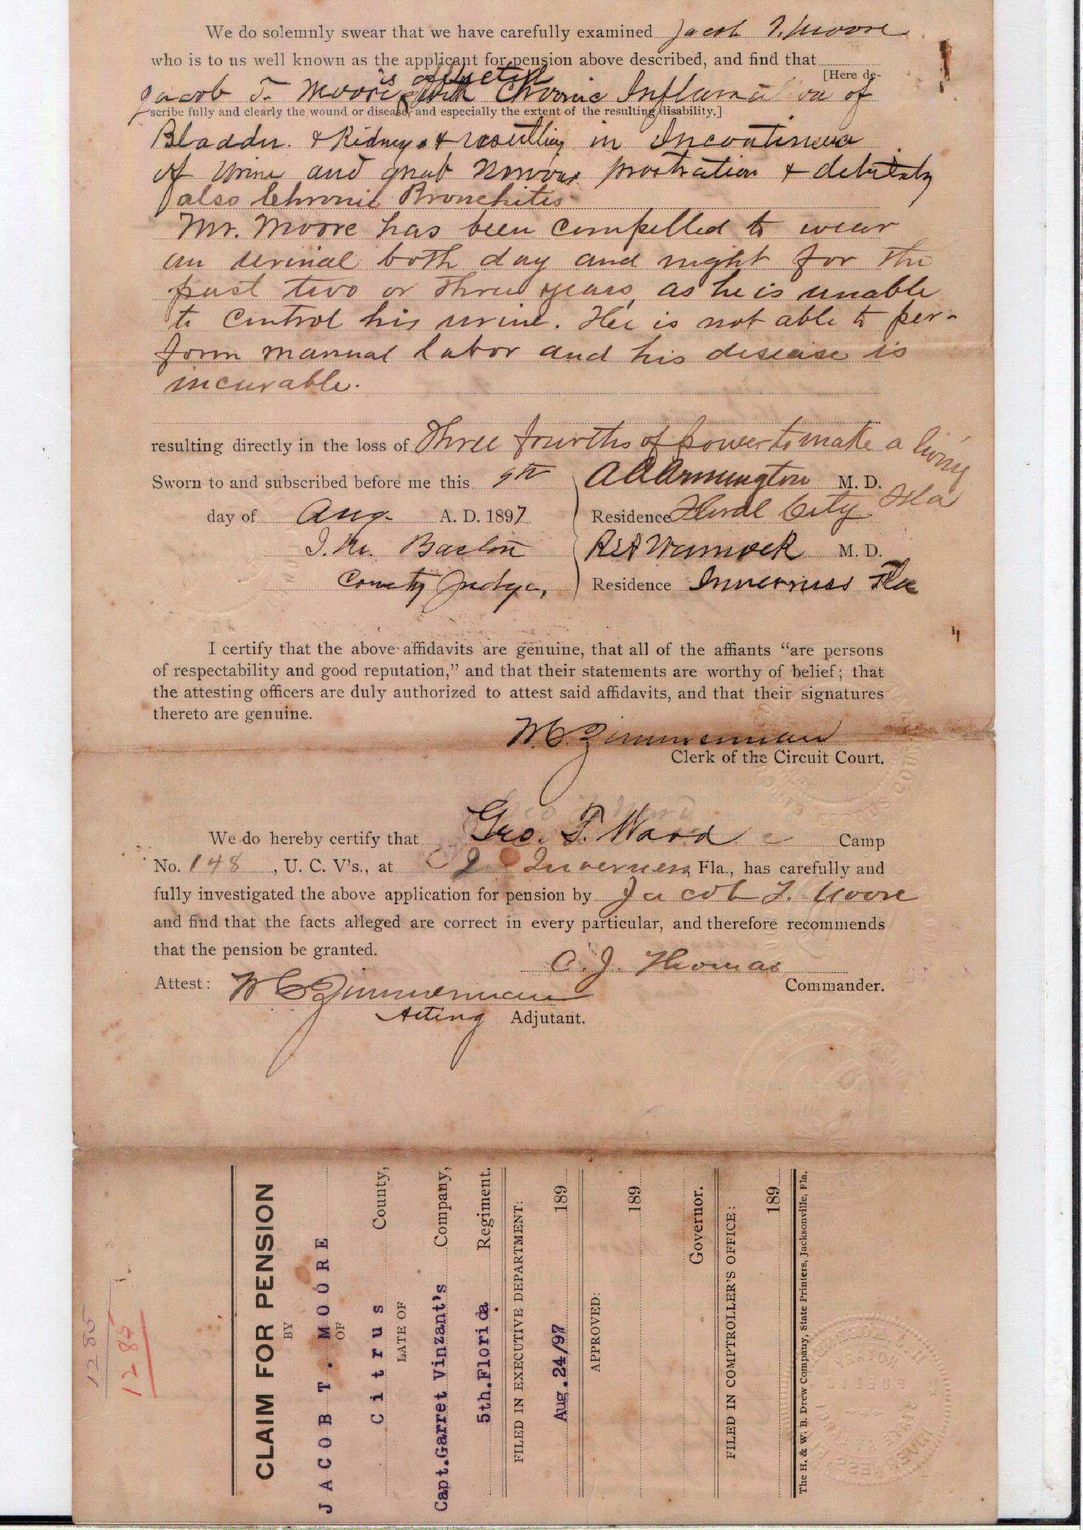 We do solemnly swear that we have carefully examined Jacob T. Moore
who is to us well known as the applicant for pension above described, and find that
[Here de-
is afflicted
Jacob T. Moore with Chronic Inflamation of
scribe fully and clearly the wound or disease, and especially the extent of the resulting disability.]
Bladder & Kidneys & resulting in Incontinence
of Urine and great Nervous prostration & debility
also Chronic Bronchites
Mr. Moore has been compelled to wear
an urinal both day and night for the
past two or three years, as he is unable
to control his urine. He is not able to per-
form manual labor and his disease is
incurable.
resulting directly in the loss of three fourths of power to make a living
Sworn to and subscribed before me this 9th
day of Aug. A. D. 1897
County Judge,
M. D.
Residence Floral City Fla
M. D.
Residence Inverness Fla
I certify that the above affidavits are genuine, that all of the affiants “are persons
of respectability and good reputation,” and that their statements are worthy of belief; that
the attesting officers are duly authorized to attest said affidavits, and that their signatures
thereto are genuine.
W. C. Zimmerman
Clerk of the Circuit Court.
We do hereby certify that Geo. T. Ward Camp
No. 148, U. C. V's., at Inverness Fla., has carefully and
fully investigated the above application for pension by Jacob T. Moore
and find that the facts alleged are correct in every particular, and therefore recommends
that the pension be granted.
C. J. Thomas
Commander.
Attest: W C Zimmerman
Acting Adjutant.
1285
1285
CLAIM FOR PENSION
BY
JACOB T. MOORE
OF
Citrus County,
LATE OF
Capt. Garret Vinzant's Company,
5th. Florida Regiment.
FILED IN EXECUTIVE DEPARTMENT:
Aug. 24/97 189
APPROVED:
189
Governor.
FILED IN COMPTROLLER'S OFFICE:
189
The H. & W. B. Drew Company, State Printers, Jacksonville, Fla.